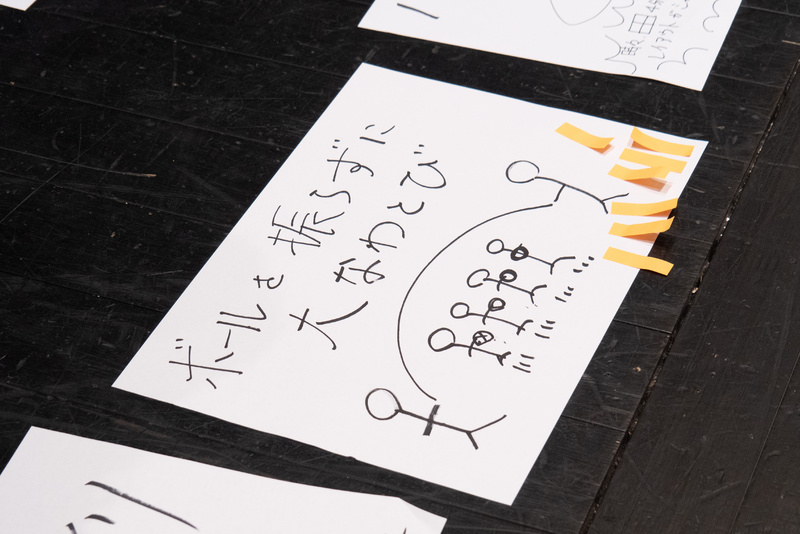 ボールを振らずに
大なわとび